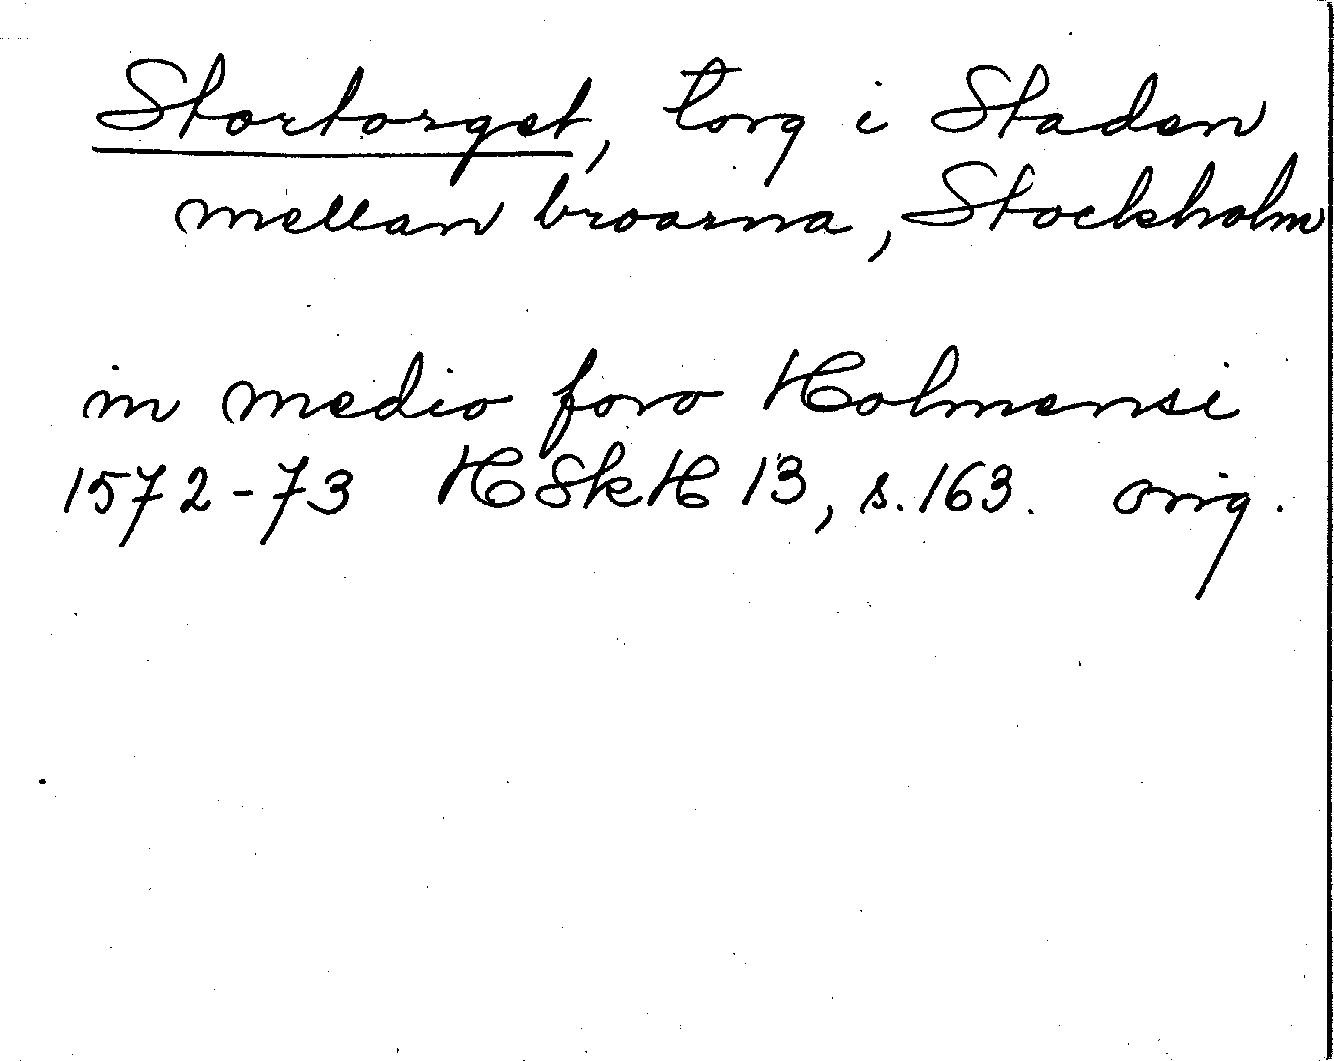 Stortorget, torg i Staden
mellan broarna, Stockholm
in medio foro Holmensi
1572-73 HSkH 13, s. 163. orig.